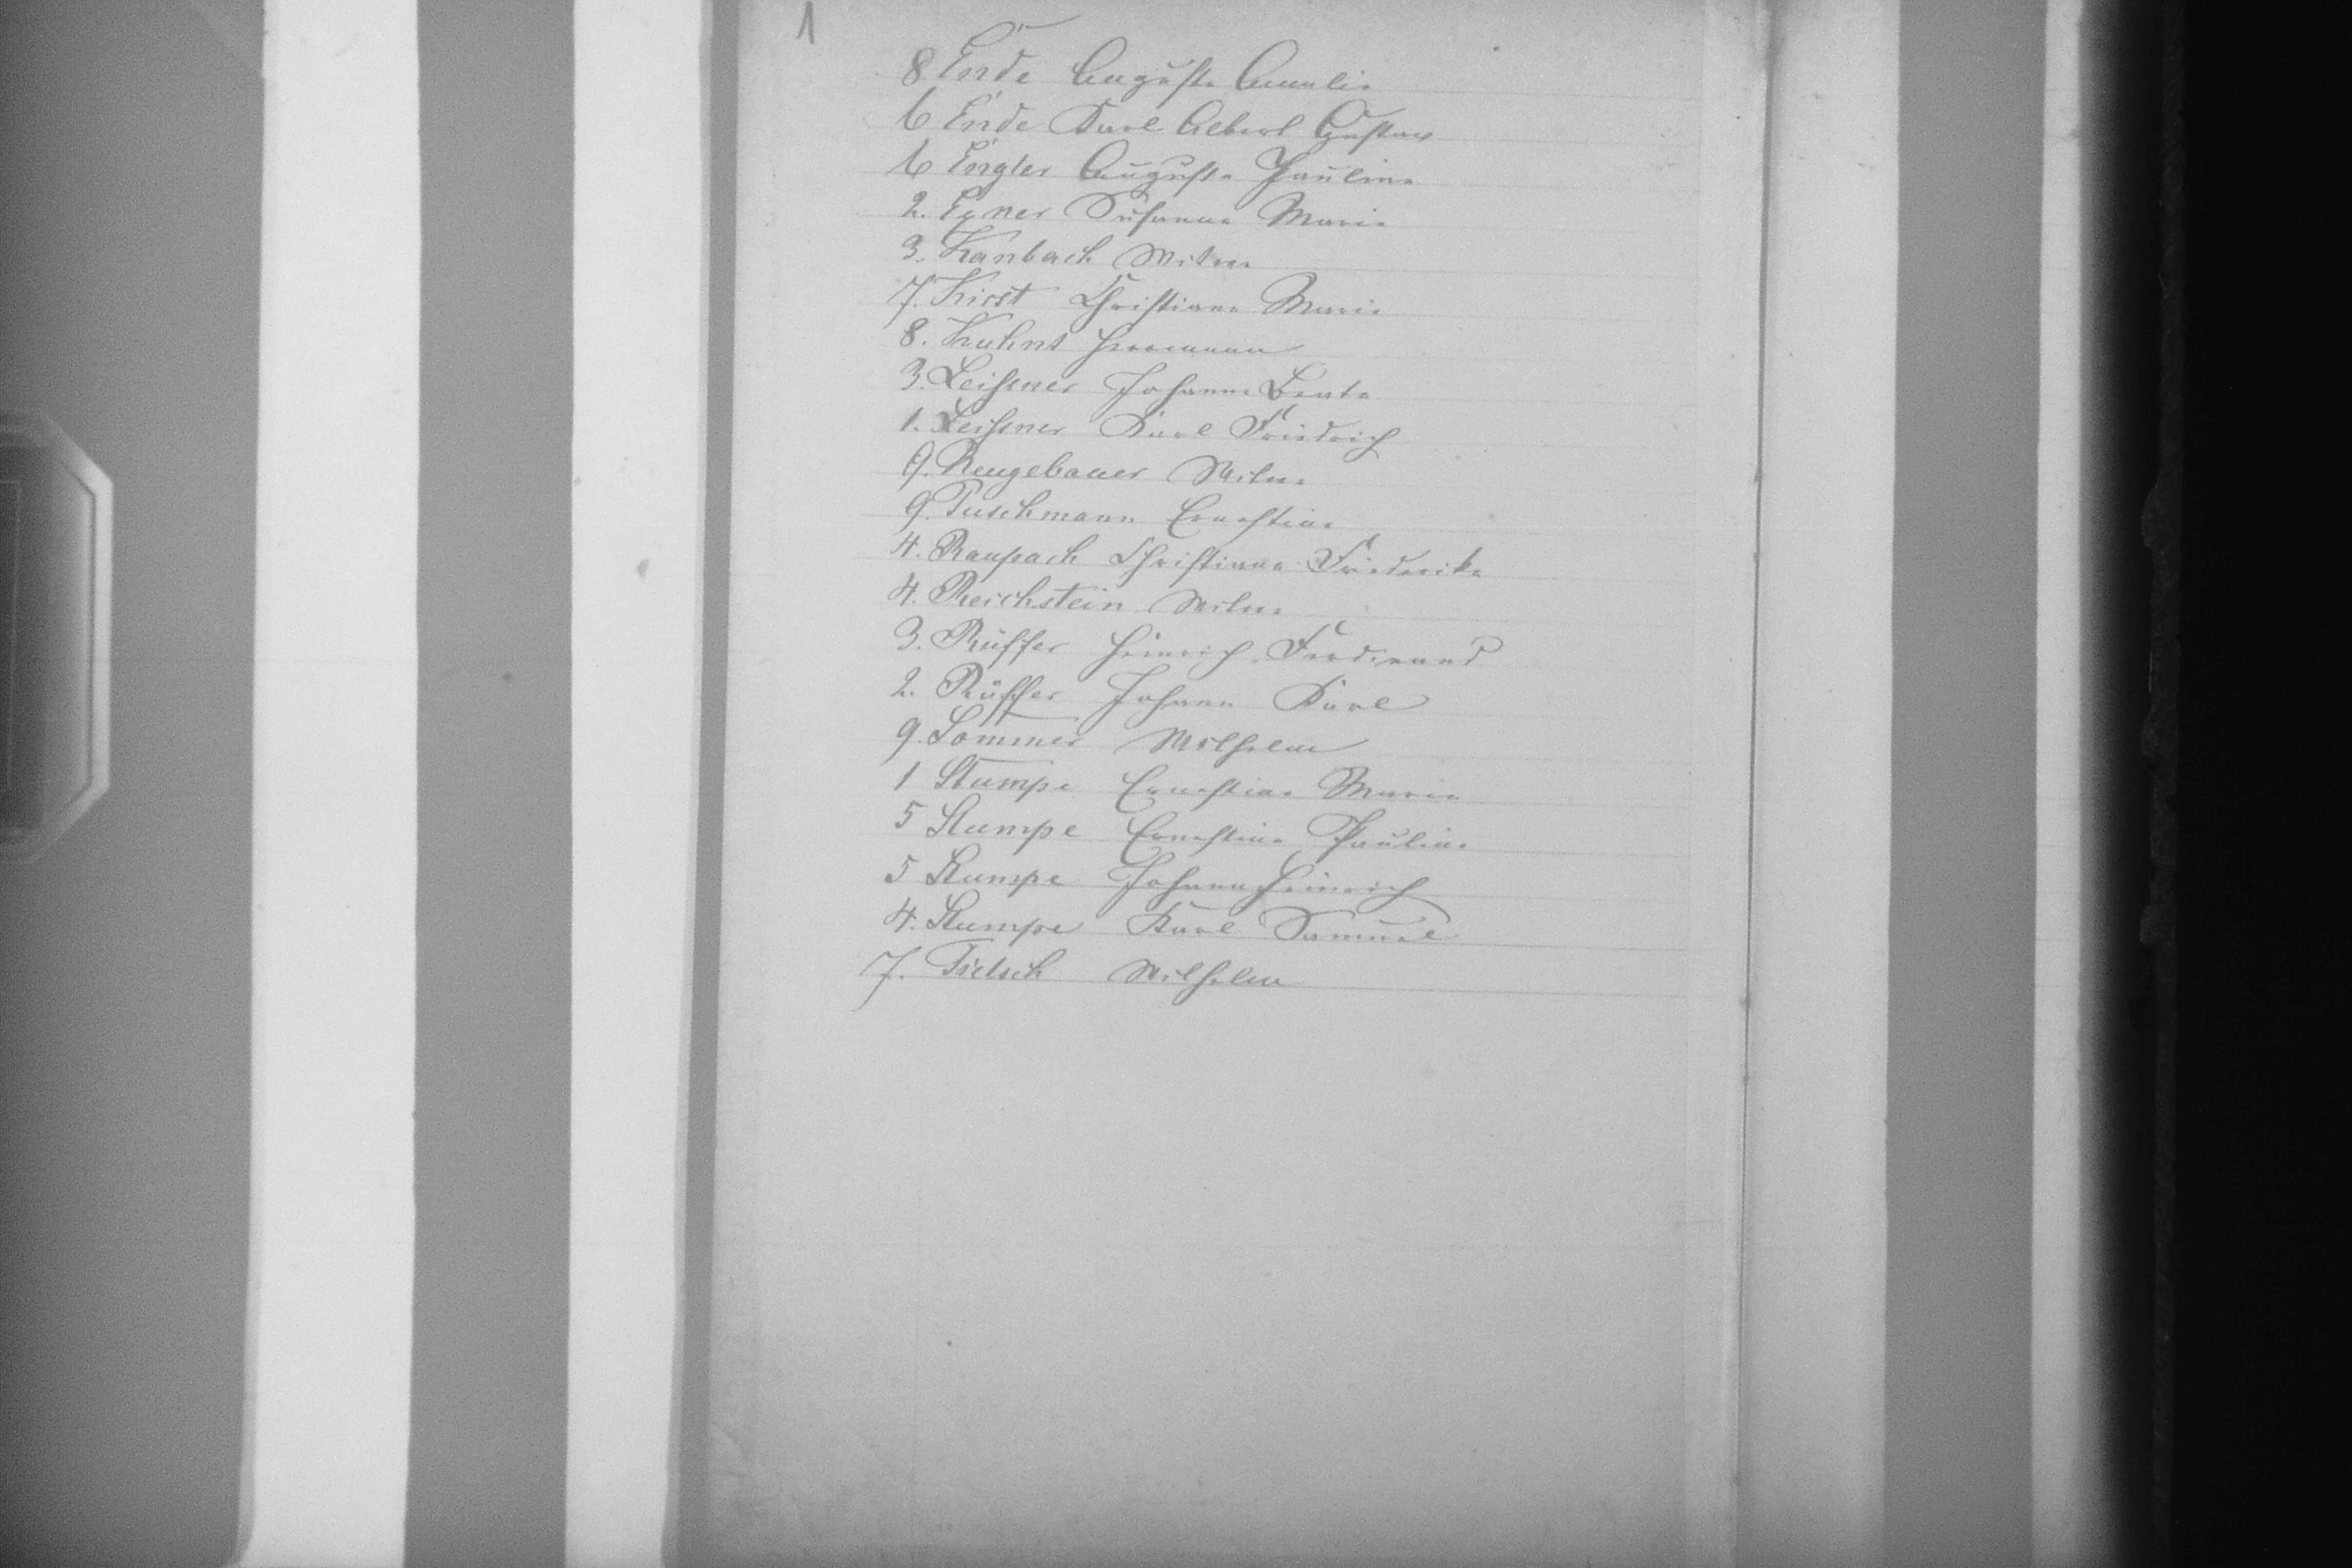 1
8 Ende Auguste Amalie
6 Ende Karl Albert Gustav
6 Engler Auguste Pauline
2. Exner Susanne Marie
3. Kanbach Witwe
7. Kirst Christiane Marie
8. Kuhnt Herrmann
3. Leißner Johanne Beate
1. Leißner Karl Friedrich
9. Neugebauer Witwe
9. Puschmann Ernestine
4. Raupach Christiane Friederike
4. Reichstein Witwe
3. Rüffer Heinrich Ferdinand
2. Rüffer Johann Karl
9. Sommer Wilhelm
1 Stumpe Ernestine Marie
5 Stumpe Ernestine Pauline
5 Stumpe Johann Heinrich
4. Stumpe Karl Samuel
7. Tietsch Wilhelm